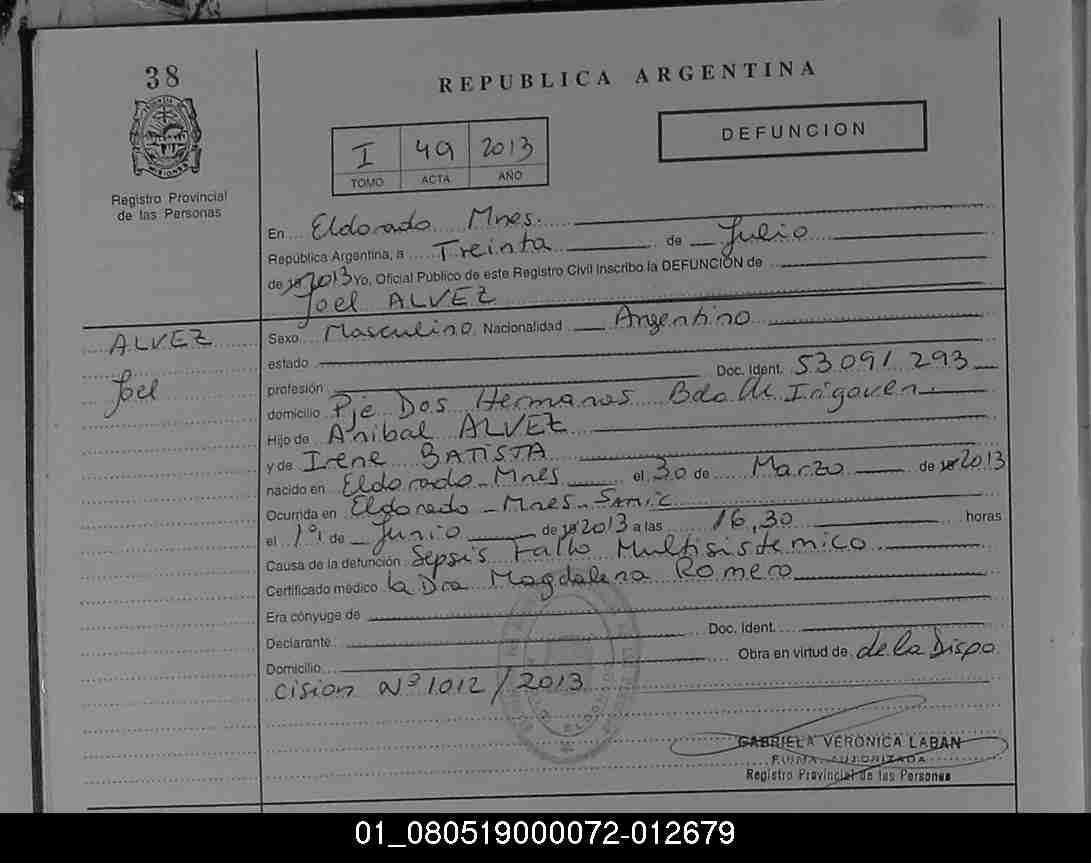 38
REPUBLICA ARGENTINA
I 49 2013
TOMO ACTA AÑO
DEFUNCION
Registro Provincial
de las Personas
En Eldorado Mnes.
República Argentina, a Treinta de Julio
de 2013 Yo, Oficial Público de este Registro Civil Inscribo la DEFUNCIÓN de
Joel ALVEZ
ALVEZ
Joel
Sexo Masculino Nacionalidad Argentino
estado
profesión Doc. Ident. 53091 293
domicilio Pje Dos Hermanos Bdo de Irigoyen
Hijo de Anibal ALVEZ
y de Irene BATISTA
nacido en Eldorado - Mnes el 30 de Marzo de 2013
Ocurrida en Eldorado - Mnes - Samic
el 1º de Junio de 2013 a las 16,30 horas
Causa de la defunción Sepsis Fallo Multisistemico
Certificado médico la Dra Magdalena Romero
Era cónyuge de
Declarante Doc. Ident.
Domicilio Obra en virtud de de la Dispo
cision Nº 1012/2013
GABRIELA VERONICA LABAN
FIRMA AUTORIZADA
Registro Provincial de las Personas
01_080519000072-012679